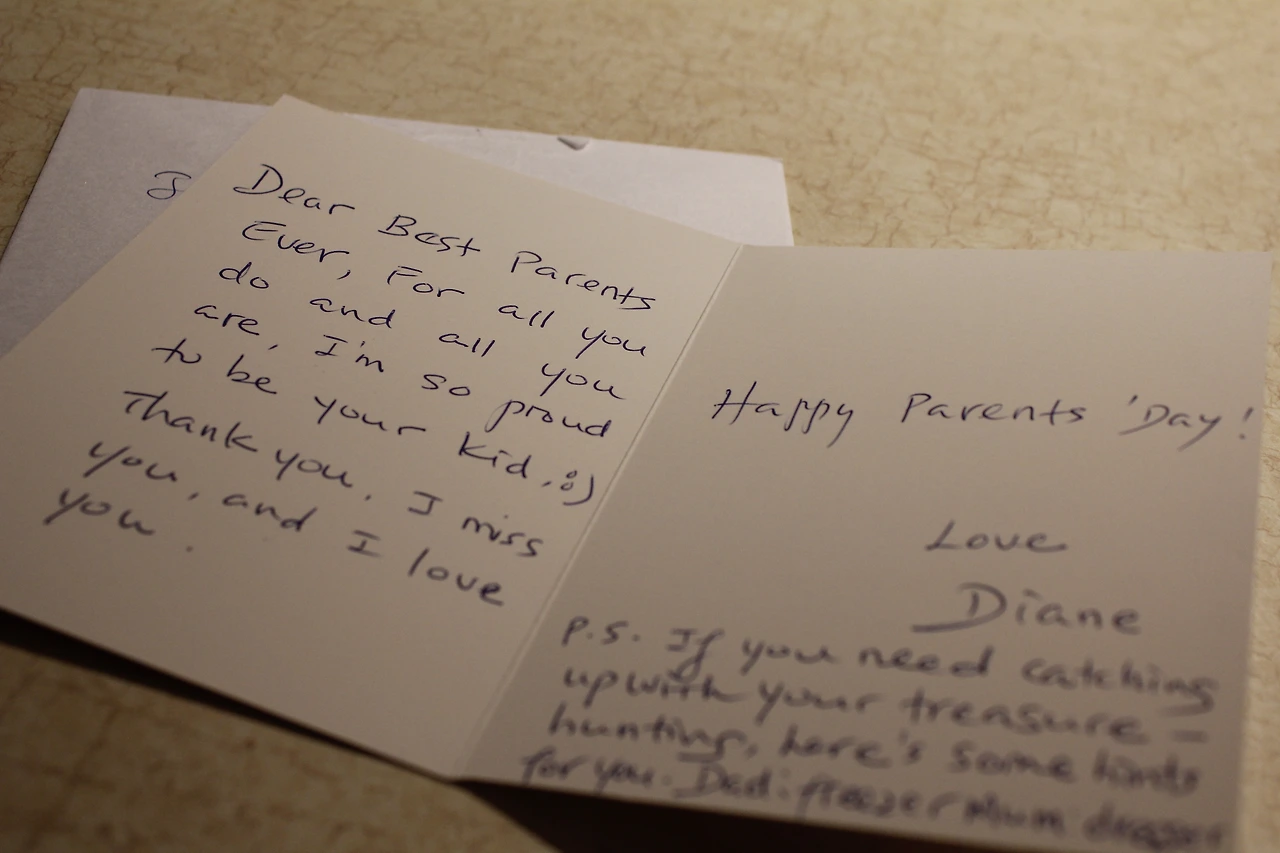 J
Dear Best Parents
Ever, For all you
do and all you
are, I'm so proud
to be your kid. :)
Thank you. I miss
you, and I love
you.
Happy Parents 'Day!
Love
Diane
P.S. If you need catching
up with your treasure-
hunting, here's some hints
for you. Dad: freezer Mum: